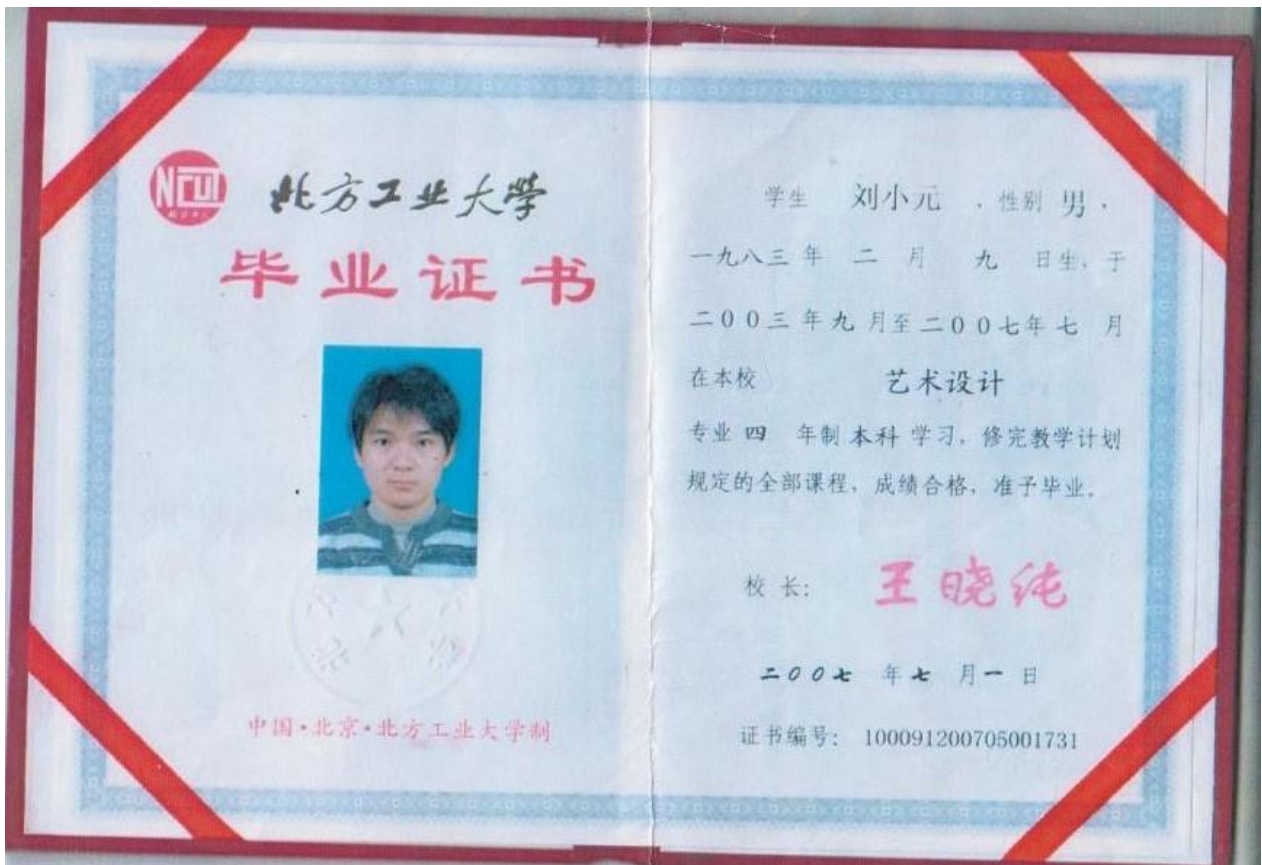 NCUT
北方工业大学
毕业证书
中国·北京·北方工业大学制
学生 刘小元 ，性别 男 ，
一九八三 年 二 月 九 日生，于
二00三 年 九 月至 二00七 年 七 月
在本校 艺术设计
专业 四 年制 本科 学习，修完教学计划
规定的全部课程，成绩合格，准予毕业。
校 长： 王晓纯
二00七 年 七 月 一 日
证书编号： 100091200705001731